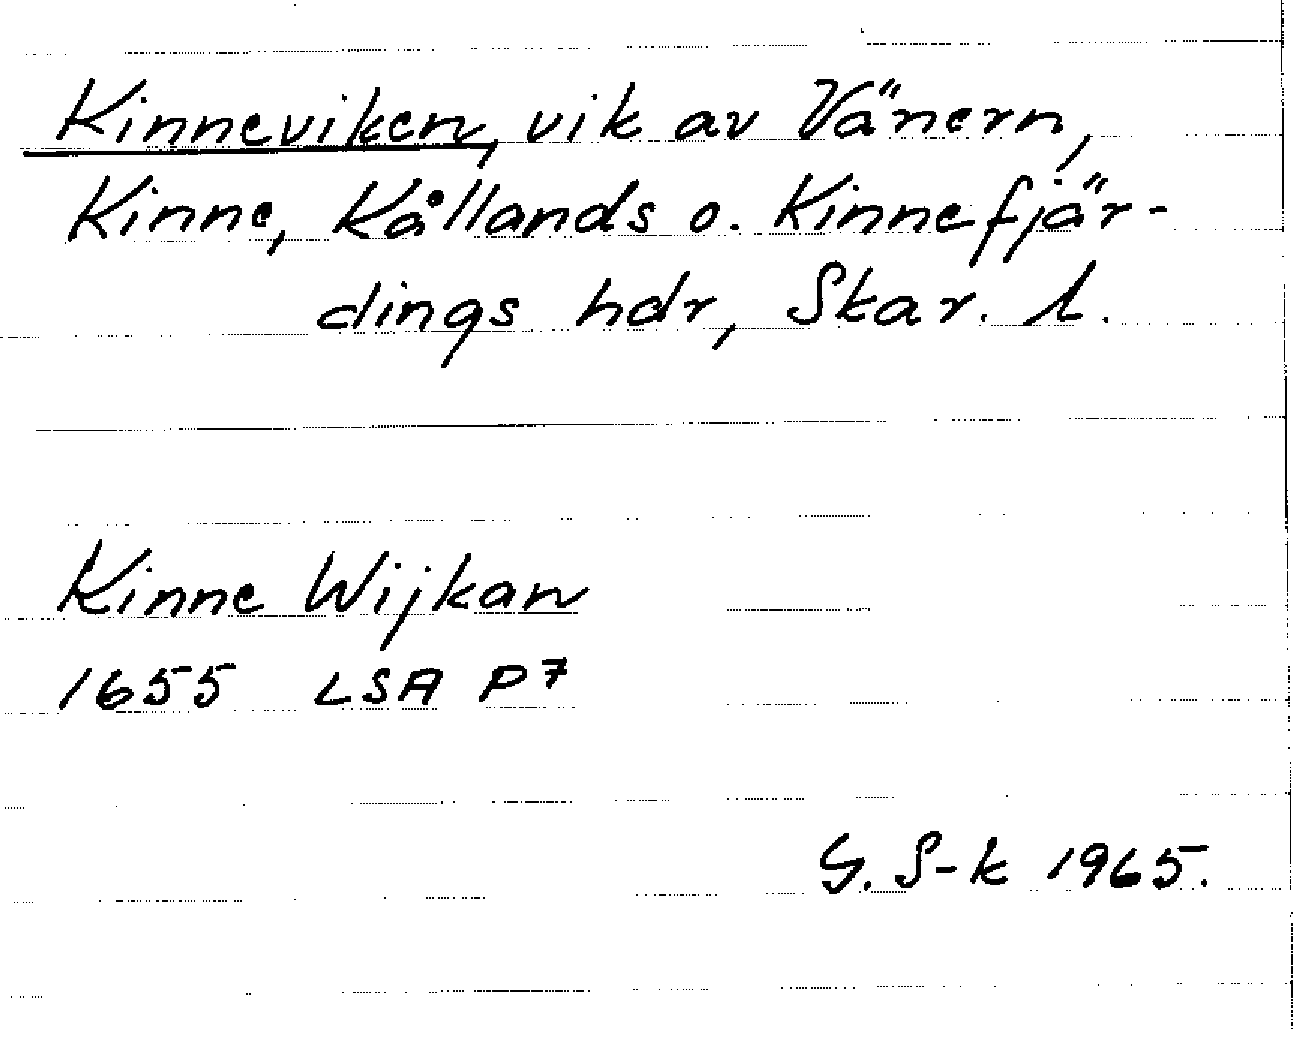 Kinneviken, vik av Vänern,
Kinne, Kållands o. Kinnefjär-
dings hdr, Skar. l.
Kinne Wijkan
1655 LSA P7
G. S-k 1965.